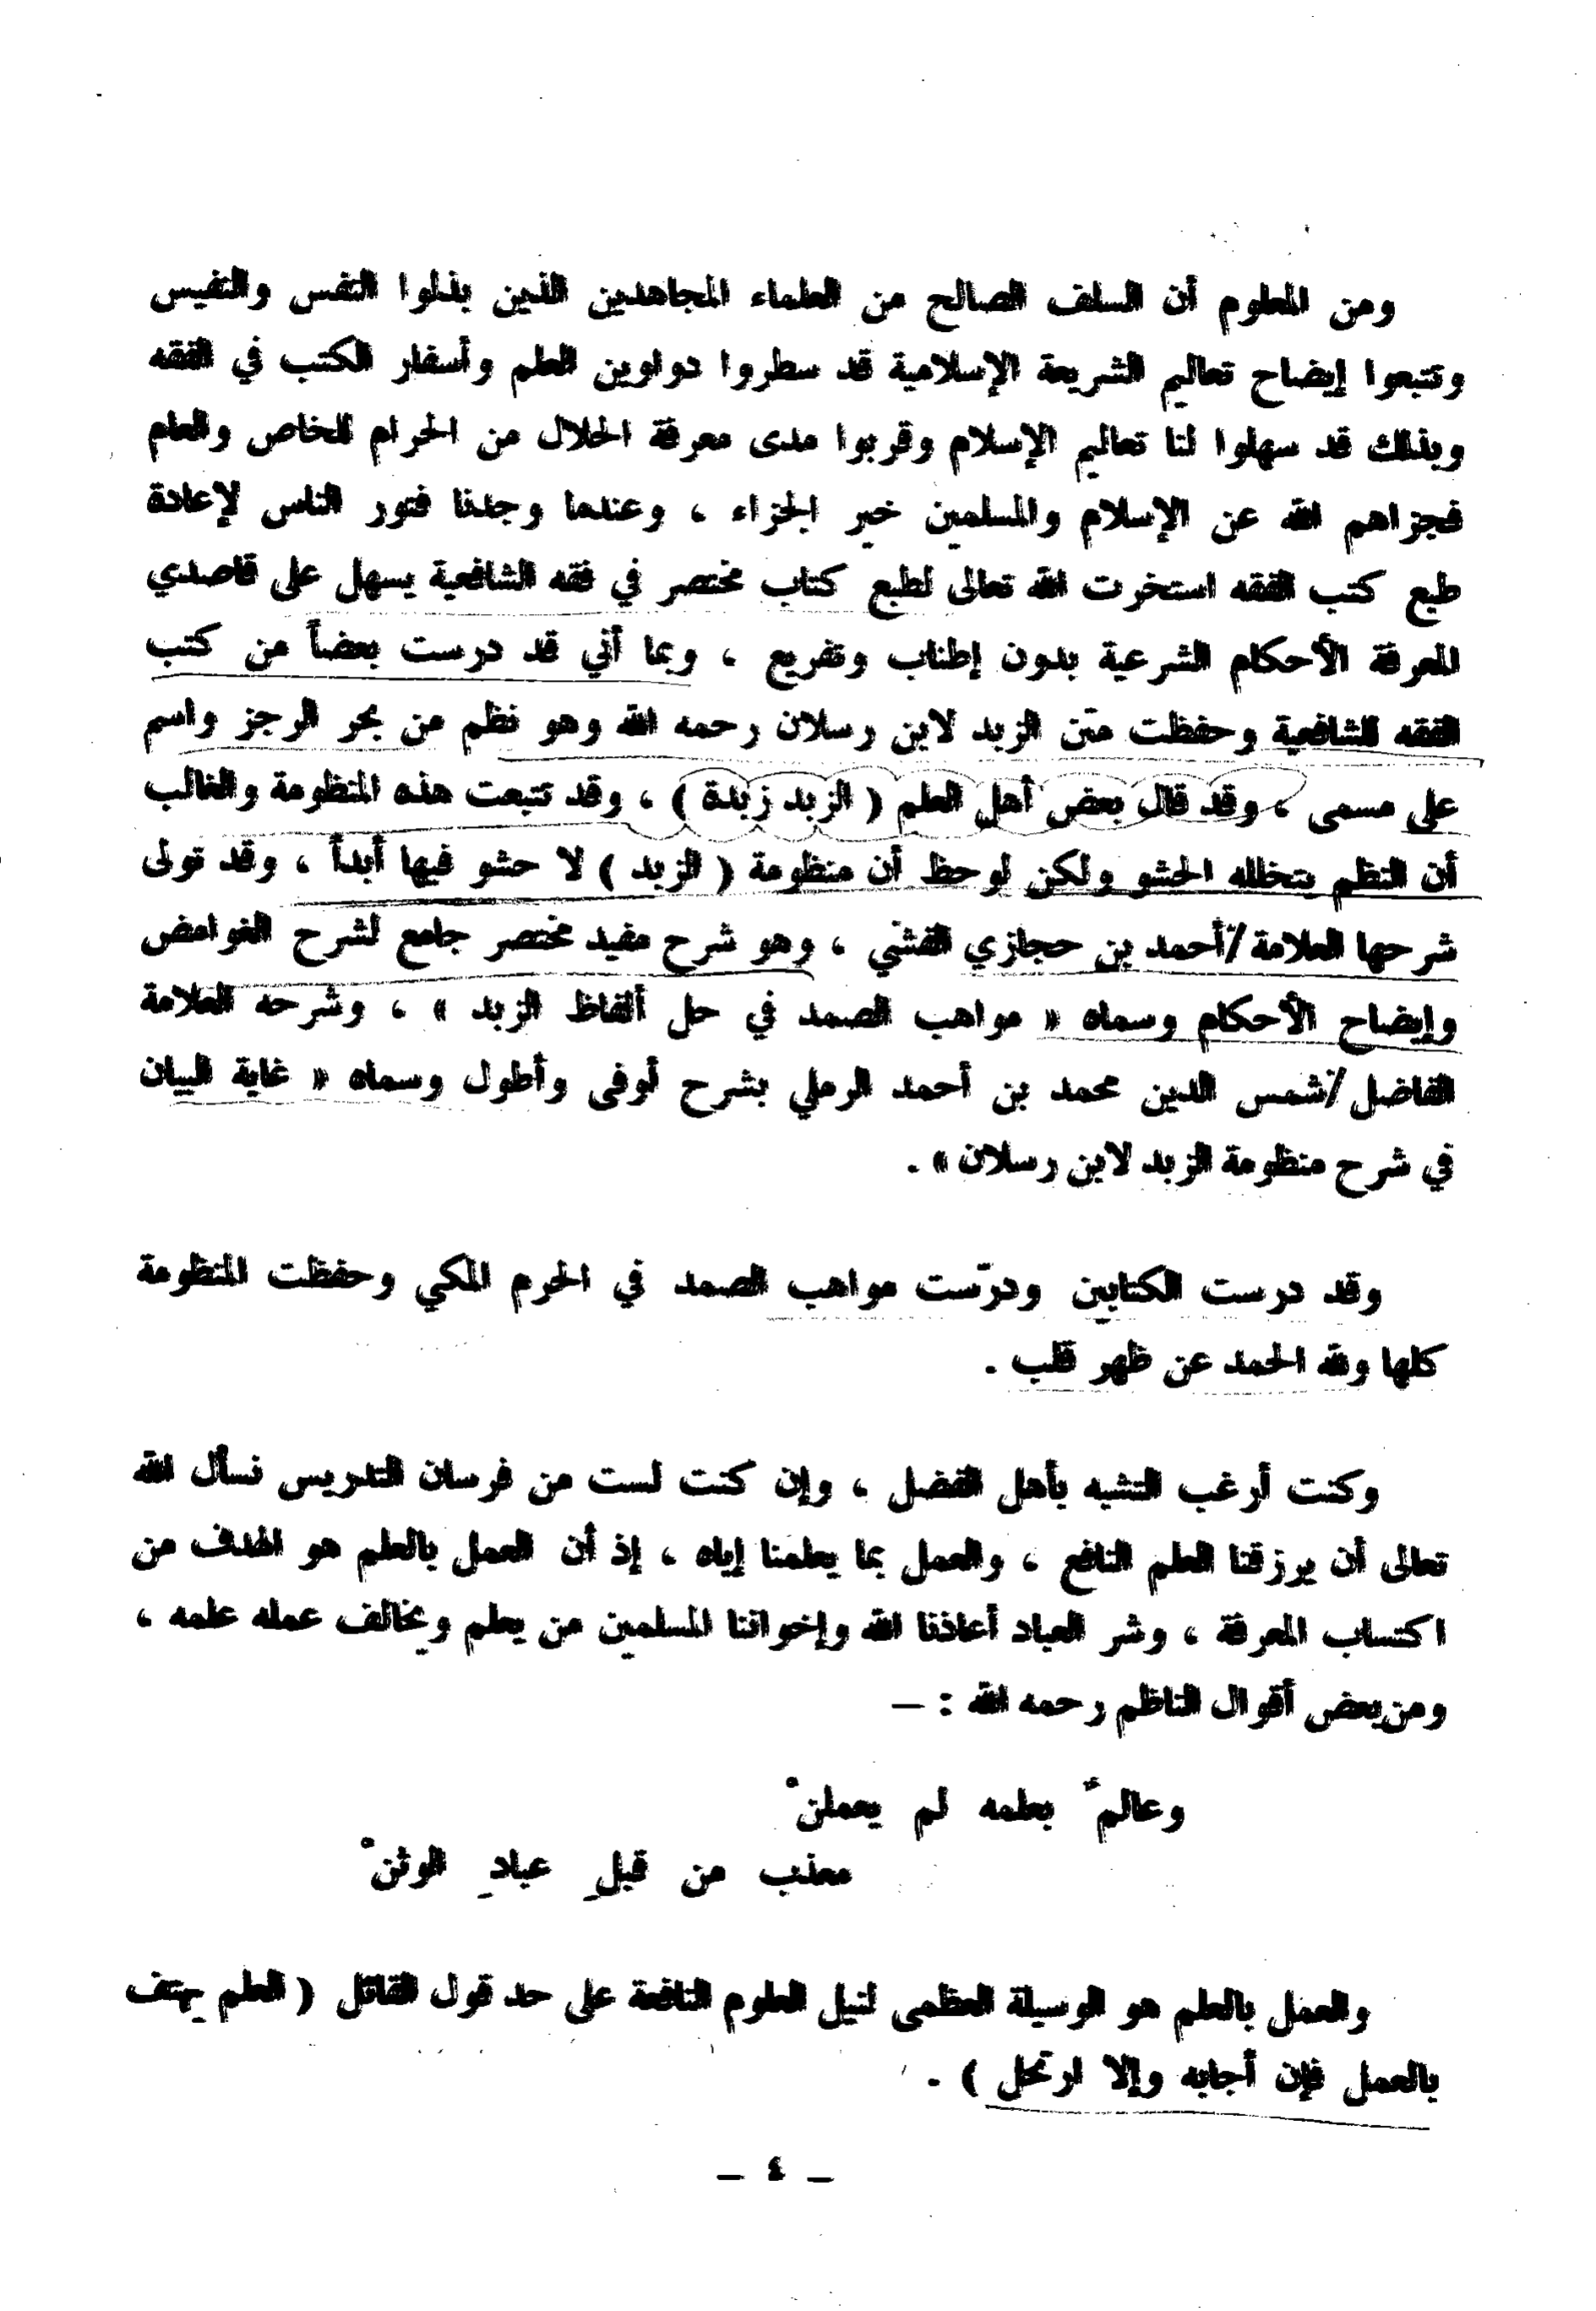 ومن المعلوم أن السلف الصالح من العلماء المجاهدين الذين بذلوا النفس والنفيس
وتتبعوا إيضاح تعاليم الشريعة الإسلامية قد سطروا دواوين العلم وأسفار الكتب في الفقه
وبذلك قد سهلوا لنا تعاليم الإسلام وقربوا مدى معرفة الحلال من الحرام للخاص والعام
فجزاهم الله عن الإسلام والمسلمين خير الجزاء ، وعندما وجدنا فتور الناس لإعادة
طبع كتب الفقه استخرت الله تعالى لطبع كتاب مختصر في فقه الشافعية يسهل على قاصدي
المعرفة الأحكام الشرعية بدون إطناب وتفريع ، وبما أني قد درست بعضاً من كتب
الفقه للشافعية وحفظت متن الزبد لابن رسلان رحمه الله وهو نظم من بحر الرجز واسم
على مسمى ، وقد قال بعض أهل العلم ( الزبد زبدة ) ، وقد تتبعت هذه المنظومة والغالب
أن النظم يتخلله الحشو ولكن لوحظ أن منظومة ( الزبد ) لا حشو فيها أبداً ، وقد تولى
شرحها العلامة/أحمد بن حجازي الفشني ، وهو شرح مفيد مختصر جامع لشرح الغوامض
وإيضاح الأحكام وسماه « مواهب الصمد في حل ألفاظ الزبد » ، وشرحه العلامة
الفاضل/شمس الدين محمد بن أحمد الرملي بشرح أوفى وأطول وسماه « غاية البيان
في شرح منظومة الزبد لابن رسلان » .
وقد درست الكتابين ودرّست مواهب الصمد في الحرم المكي وحفظت المنظومة
كلها ولله الحمد عن ظهر قلب .
وكنت أرغب التشبه بأهل الفضل ، وإن كنت لست من فرسان التدريس نسأل الله
تعالى أن يرزقنا العلم النافع ، والعمل بما يعلمنا إياه ، إذ أن العمل بالعلم هو الهدف من
اكتساب المعرفة ، وشر العباد أعاذنا الله وإخواننا المسلمين من يعلم ويخالف عمله علمه ،
ومن بعض أقوال الناظم رحمه الله : —
وعالمٌ بعلمه لم يعملنْ
معذب من قبلِ عبادِ الوثنْ
والعمل بالعلم هو الوسيلة العظمى لنيل العلوم النافعة على حد قول القائل ( العلم يهتف
بالعمل فإن أجابه وإلا ارتحل ) .
— ٤ —